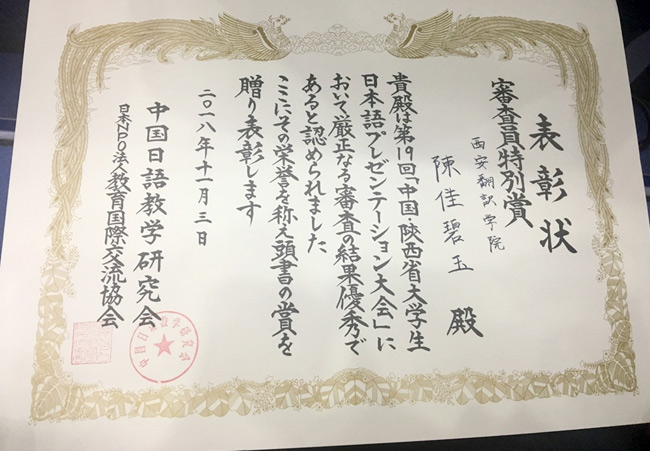 表彰状
審査員特別賞
西安翻訳学院
陳佳碧玉 殿
貴殿は第19回「中国・陝西省大学生
日本語プレゼンテーション大会」に
おいて厳正なる審査の結果優秀で
あると認められました
ここにその栄誉を称え頭書の賞を
贈り表彰します
二〇一八年十一月三日
中国日語教学研究会
日本NPO法人教育国際交流協会